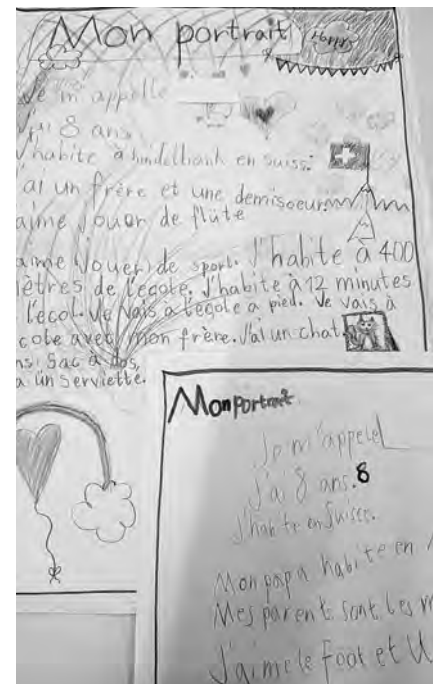 Mon portrait
Happy
Je m'appelle
J'ai 8 ans
J'habite à hindelbank en suisse
ai un frère et une demisoeur
aime jouer de flüte
aime jouer de sport. J'habite à 400
ètres de l'ecole. J'habite à 12 minutes
l'ecol. Je vais a l'ecole a pied. Je vais à
cole avec mon frère. J'ai un chat
ns. Sac à dos,
a un serviette.
Mon Portrait
Je m'appelel
J'a 8 ans. 8
J'habite en Suisse.
Mon papa habite en
Mes parents sont les
J'aime le foot et